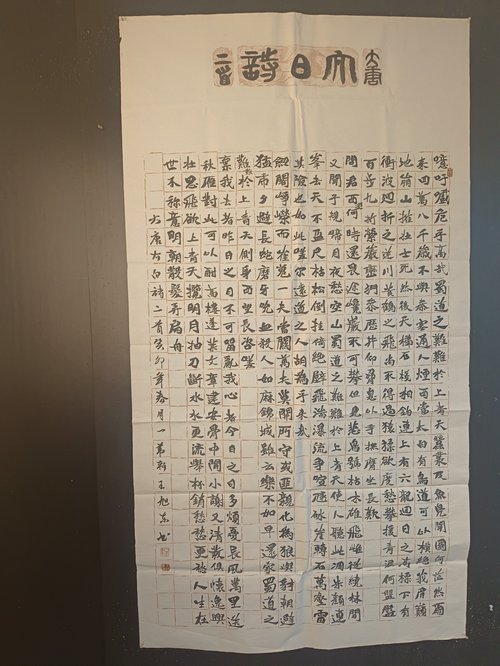 大唐
太白詩
二首
噫吁嚱危乎高哉蜀道之難難於上青天蠶叢及魚鳧開國何茫然爾
來四萬八千歲不與秦塞通人煙西當太白有鳥道可以橫絕峨眉巔
地崩山摧壯士死然後天梯石棧相鉤連上有六龍迴日之高標下有
衝波逆折之迴川黃鶴之飛尚不得過猿猱欲度愁攀援青泥何盤盤
百步九折縈巖巒捫參歷井仰脅息以手撫膺坐長歎
問君西遊何時還畏途巉巖不可攀但見悲鳥號枯木雄飛雌從繞林間
又聞子規啼月夜愁空山蜀道之難難於上青天使人聽此凋朱顏連
峯去天不盈尺枯松倒挂倚絕壁飛湍瀑流爭喧豗砯崖轉石萬壑雷
其險也如此嗟爾遠道之人胡為乎來哉
劍閣崢嶸而崔嵬一夫當關萬夫莫開所守或匪親化為狼與豺朝避
猛虎夕避長蛇磨牙吮血殺人如麻錦城雖云樂不如早還家蜀道之
難難於上青天側身西望長咨嗟
棄我去者昨日之日不可留亂我心者今日之日多煩憂長風萬里送
秋雁對此可以酣高樓蓬萊文章建安骨中間小謝又清發俱懷逸興
壯思飛欲上青天攬明月抽刀斷水水更流舉杯銷愁愁更愁人生在
世不稱意明朝散髮弄扁舟
大唐太白詩二首癸卯年春月一王旭东书